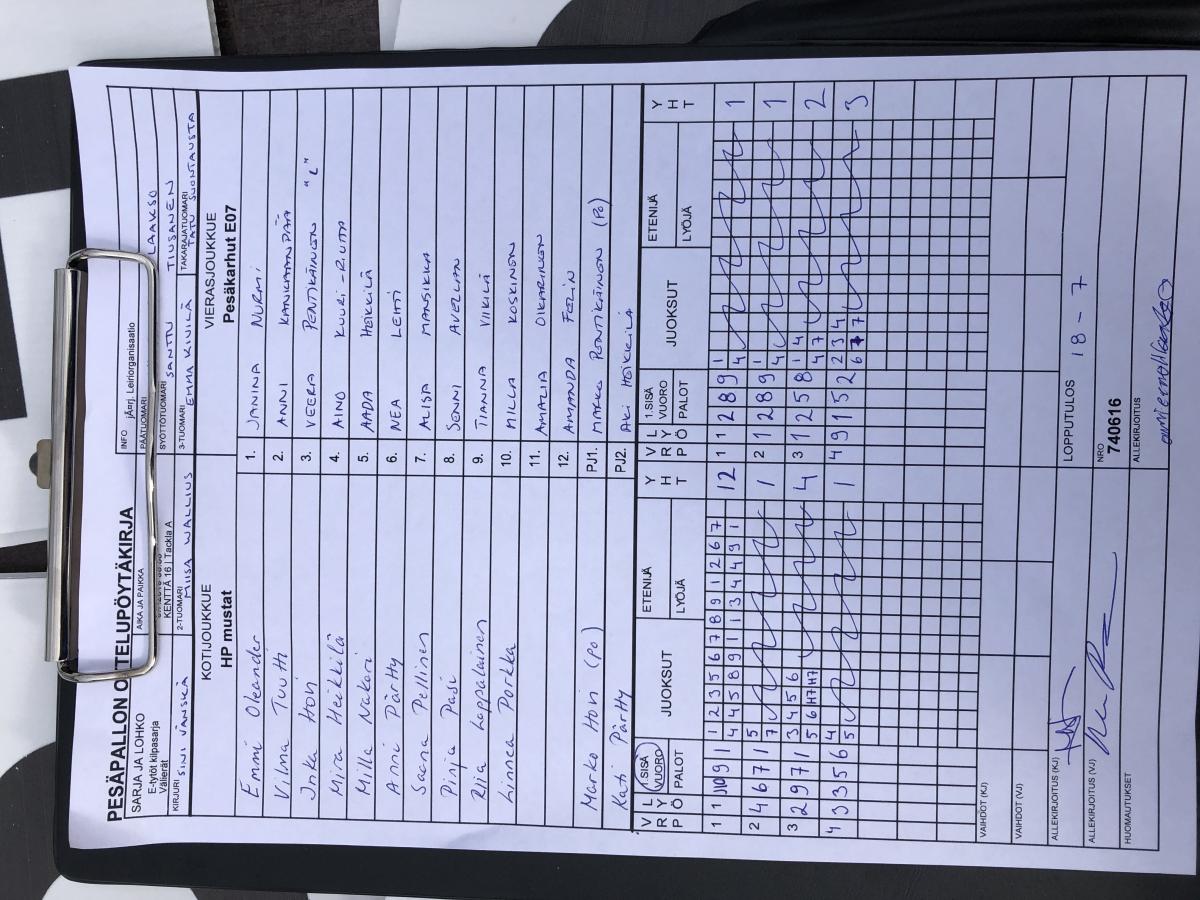 PESÄPALLON OTTELUPÖYTÄKIRJA
SARJA JA LOHKO
E-tytöt kilpasarja
Välierät
AIKA JA PAIKKA
KENTTÄ 16 | Tackla A
INFO
jÄ¤rj. Leiriorganisaatio
PÄÄTUOMARI
LAAKSO
SYÖTTÖTUOMARI
SANTTU TIUSANEN
KIRJURI
SINI JÄNSKÄ
2-TUOMARI
MIISA WALLIUS
3-TUOMARI
EMMA KIVILÄ
TAKARAJATUOMARI
TATU SUONTAUSTA
KOTIJOUKKUE
HP mustat
VIERASJOUKKUE
Pesäkarhut E07
Emmi Oleander 1. JANINA NURMI
Vilma Tuutti 2. ANNI KANKAANPÄÄ
Inka Hovi 3. VEERA PENTIKÄINEN "L"
Mira Heikkilä 4. AINO KUURI-RIUTTA
Milla Nakari 5. AADA HEIKKILÄ
Anni Pärtty 6. NEA LEHTI
Saana Pellinen 7. ALISA MANSIKKA
Pinja Pasi 8. SENNI AVELLAN
Riia Lappalainen 9. TIANNA VIIKILÄ
Linnea Porkka 10. MILLA KOSKINEN
11. AMALIA OIKARINEN
12. AMANDA FELIN
Marko Hovi (PO) PJ1. MARKO PENTIKÄINEN (PO)
Kati Pärtty PJ2. AKI HEIKKILÄ
V L
R Y
P Ö
1.SISÄ
VUORO
PALOT
JUOKSUT
ETENIJÄ
LYÖJÄ
Y
H
T
V L
R Y
P Ö
1.SISÄ
VUORO
PALOT
JUOKSUT
ETENIJÄ
LYÖJÄ
Y
H
T
1 2 3 5 6 7 8 9 1 2 6 7 1
1 1 10 9 1 4 4 5 8 9 1 1 3 4 4 9 1 12 1 1 2 8 9 4 1
5 1
2 4 6 7 1 7 1 2 1 2 8 9 4 1
3 4 5 6 1 4
3 2 9 7 1 5 6 H7 H7 4 3 1 2 5 8 4 7 2
4 2 3 4
4 3 3 5 6 5 1 4 9 1 5 2 6 7 7 3
VAIHDOT (KJ)
VAIHDOT (VJ)
ALLEKIRJOITUS (KJ)
LOPPUTULOS
18 - 7
ALLEKIRJOITUS (VJ)
NRO
740616
HUOMAUTUKSET
ALLEKIRJOITUS